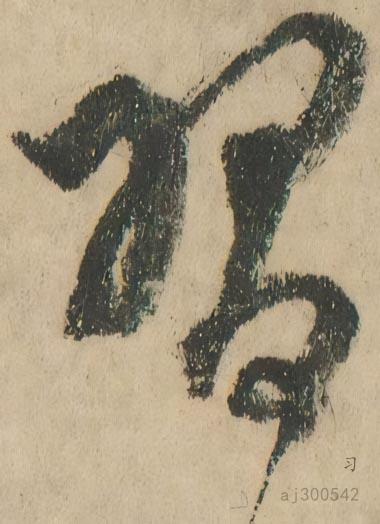 習
习
aj300542